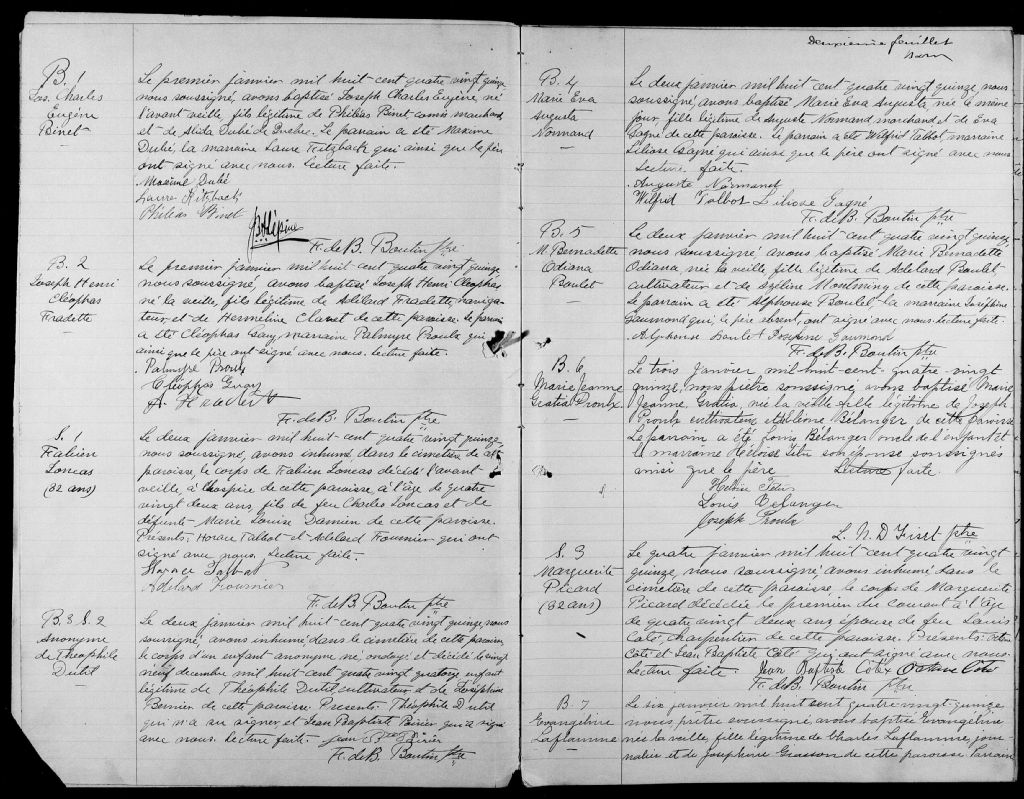 B. 1
Jos. Charles
Eugène
Binet
Le premier janvier mil huit-cent quatre vingt quinze
nous soussigné, avons baptisé Joseph Charles Eugène, né
l'avant veille, fils légitime de Philéas Binet commis marchand
et de Alida Dubé de Québec. Le parrain a été Maxime
Dubé, la marraine Laure Fitzback qui ainsi que le père
ont signé avec nous. Lecture faite.
Maxime Dubé
Laure Fitzback
Philéas Binet
F. de B. Boutin ptre
B. 2
Joseph Henri
Cléophas
Fradette
Le premier janvier mil huit-cent quatre vingt quinze
nous soussigné, avons baptisé Joseph Henri Cléophas
né la veille, fils légitime de Adélard Fradette, naviga-
teur, et de Hermeline Clavet de cette paroisse. Le parrain
a été Cléophas marraine Palmyre Proulx qui
ainsi que le père ont signé avec nous. Lecture faite.
Palmyre Proulx
Cléophas
F. de B. Boutin ptre
S. 1
Fabien
Loncas
(82 ans)
Le deux janvier mil huit-cent quatre vingt quinze,
nous soussigné, avons inhumé dans le cimetière de cette
paroisse, le corps de Fabien Loncas décédé l'avant
veille à l'hospice de cette paroisse à l'âge de quatre
vingt deux ans, fils de feu Charles Loncas et de
défunte Marie Louise Damien de cette paroisse.
Présents: Horace Talbot et Adélard Fournier qui ont
signé avec nous. Lecture faite.
Horace Talbot
Adélard Fournier
F. de B. Boutin ptre
B. 3 S. 2
Anonyme
de Théophile
Dutil
Le deux janvier mil huit-cent quatre vingt quinze, nous
soussigné, avons inhumé dans le cimetière de cette paroisse
le corps d'un enfant anonyme né, ondoyé et décédé le vingt
neuf décembre mil huit-cent quatre vingt quatorze enfant
légitime de Théophile Dutil cultivateur et de Joséphine
Bernier de cette paroisse. Présents: Théophile Dutil
qui n'a su signer et Jean Baptiste qui a signé
avec nous. Lecture faite. Jean Bte
F. de B. Boutin ptre
feuillet
B. 4
Marie Eva
Augusta
Normand
Le deux janvier mil huit-cent quatre vingt quinze, nous
soussigné, avons baptisé Marie Eva Augusta née le même
jour, fille légitime de Auguste Normand marchand et de Eva
Gagné de cette paroisse. Le parrain a été Wilfrid Talbot, marraine
Liliose Gagné qui ainsi que le père ont signé avec nous
Lecture faite.
Auguste Normand
Wilfrid Talbot Liliose Gagné
F. de B. Boutin ptre
B. 5
M. Bernadette
Odiana
Boulet
Le deux janvier mil huit-cent quatre vingt quinze,
nous soussigné, avons baptisé Marie Bernadette
Odiana, née la veille, fille légitime de Adélard Boulet
cultivateur et de Montminy de cette paroisse.
Le parrain a été Alphonse Boulet la marraine Joséphine
Gaumond qui, le père absent, ont signé avec nous. Lecture faite.
Alphonse Boulet Josephine Gaumond
F. de B. Boutin ptre
B. 6
Marie Jeanne
Gratia Proulx
Le trois Janvier mil huit-cent-quatre-vingt
quinze, nous prêtre soussigné, avons baptisé Marie
Jeanne, Gratia, née la veille fille légitime de Joseph
Proulx cultivateur et Bélanger de cette paroisse
Le parrain a été Louis Bélanger oncle de l'enfant et
la marraine Héloïse son épouse soussignés
ainsi que le père Lecture faite.
Louis Belanger
Joseph Proulx
L. N. D Fiset ptre
S. 3
Marguerite
Picard
(82 ans)
Le quatre janvier mil huit-cent quatre vingt
quinze, nous soussigné, avons inhumé dans le
cimetière de cette paroisse, le corps de Marguerite
Picard décédée le premier du courant à l'âge
de quatre vingt deux ans épouse de feu Louis
Coté charpentier de cette paroisse. Présents:
Coté et Jean Baptiste Coté qui ont signé avec nous.
Lecture faite. Jean Baptiste Cote Cote
F. de B. Boutin ptre
B. 7
Evangeline
Laflamme
Le six janvier mil huit cent quatre vingt-quinze
nous, prêtre soussigné avons baptisé Evangeline
née la veille, fille légitime de Charles Laflamme, jour-
nalier et de Josephine de cette paroisse Parrain